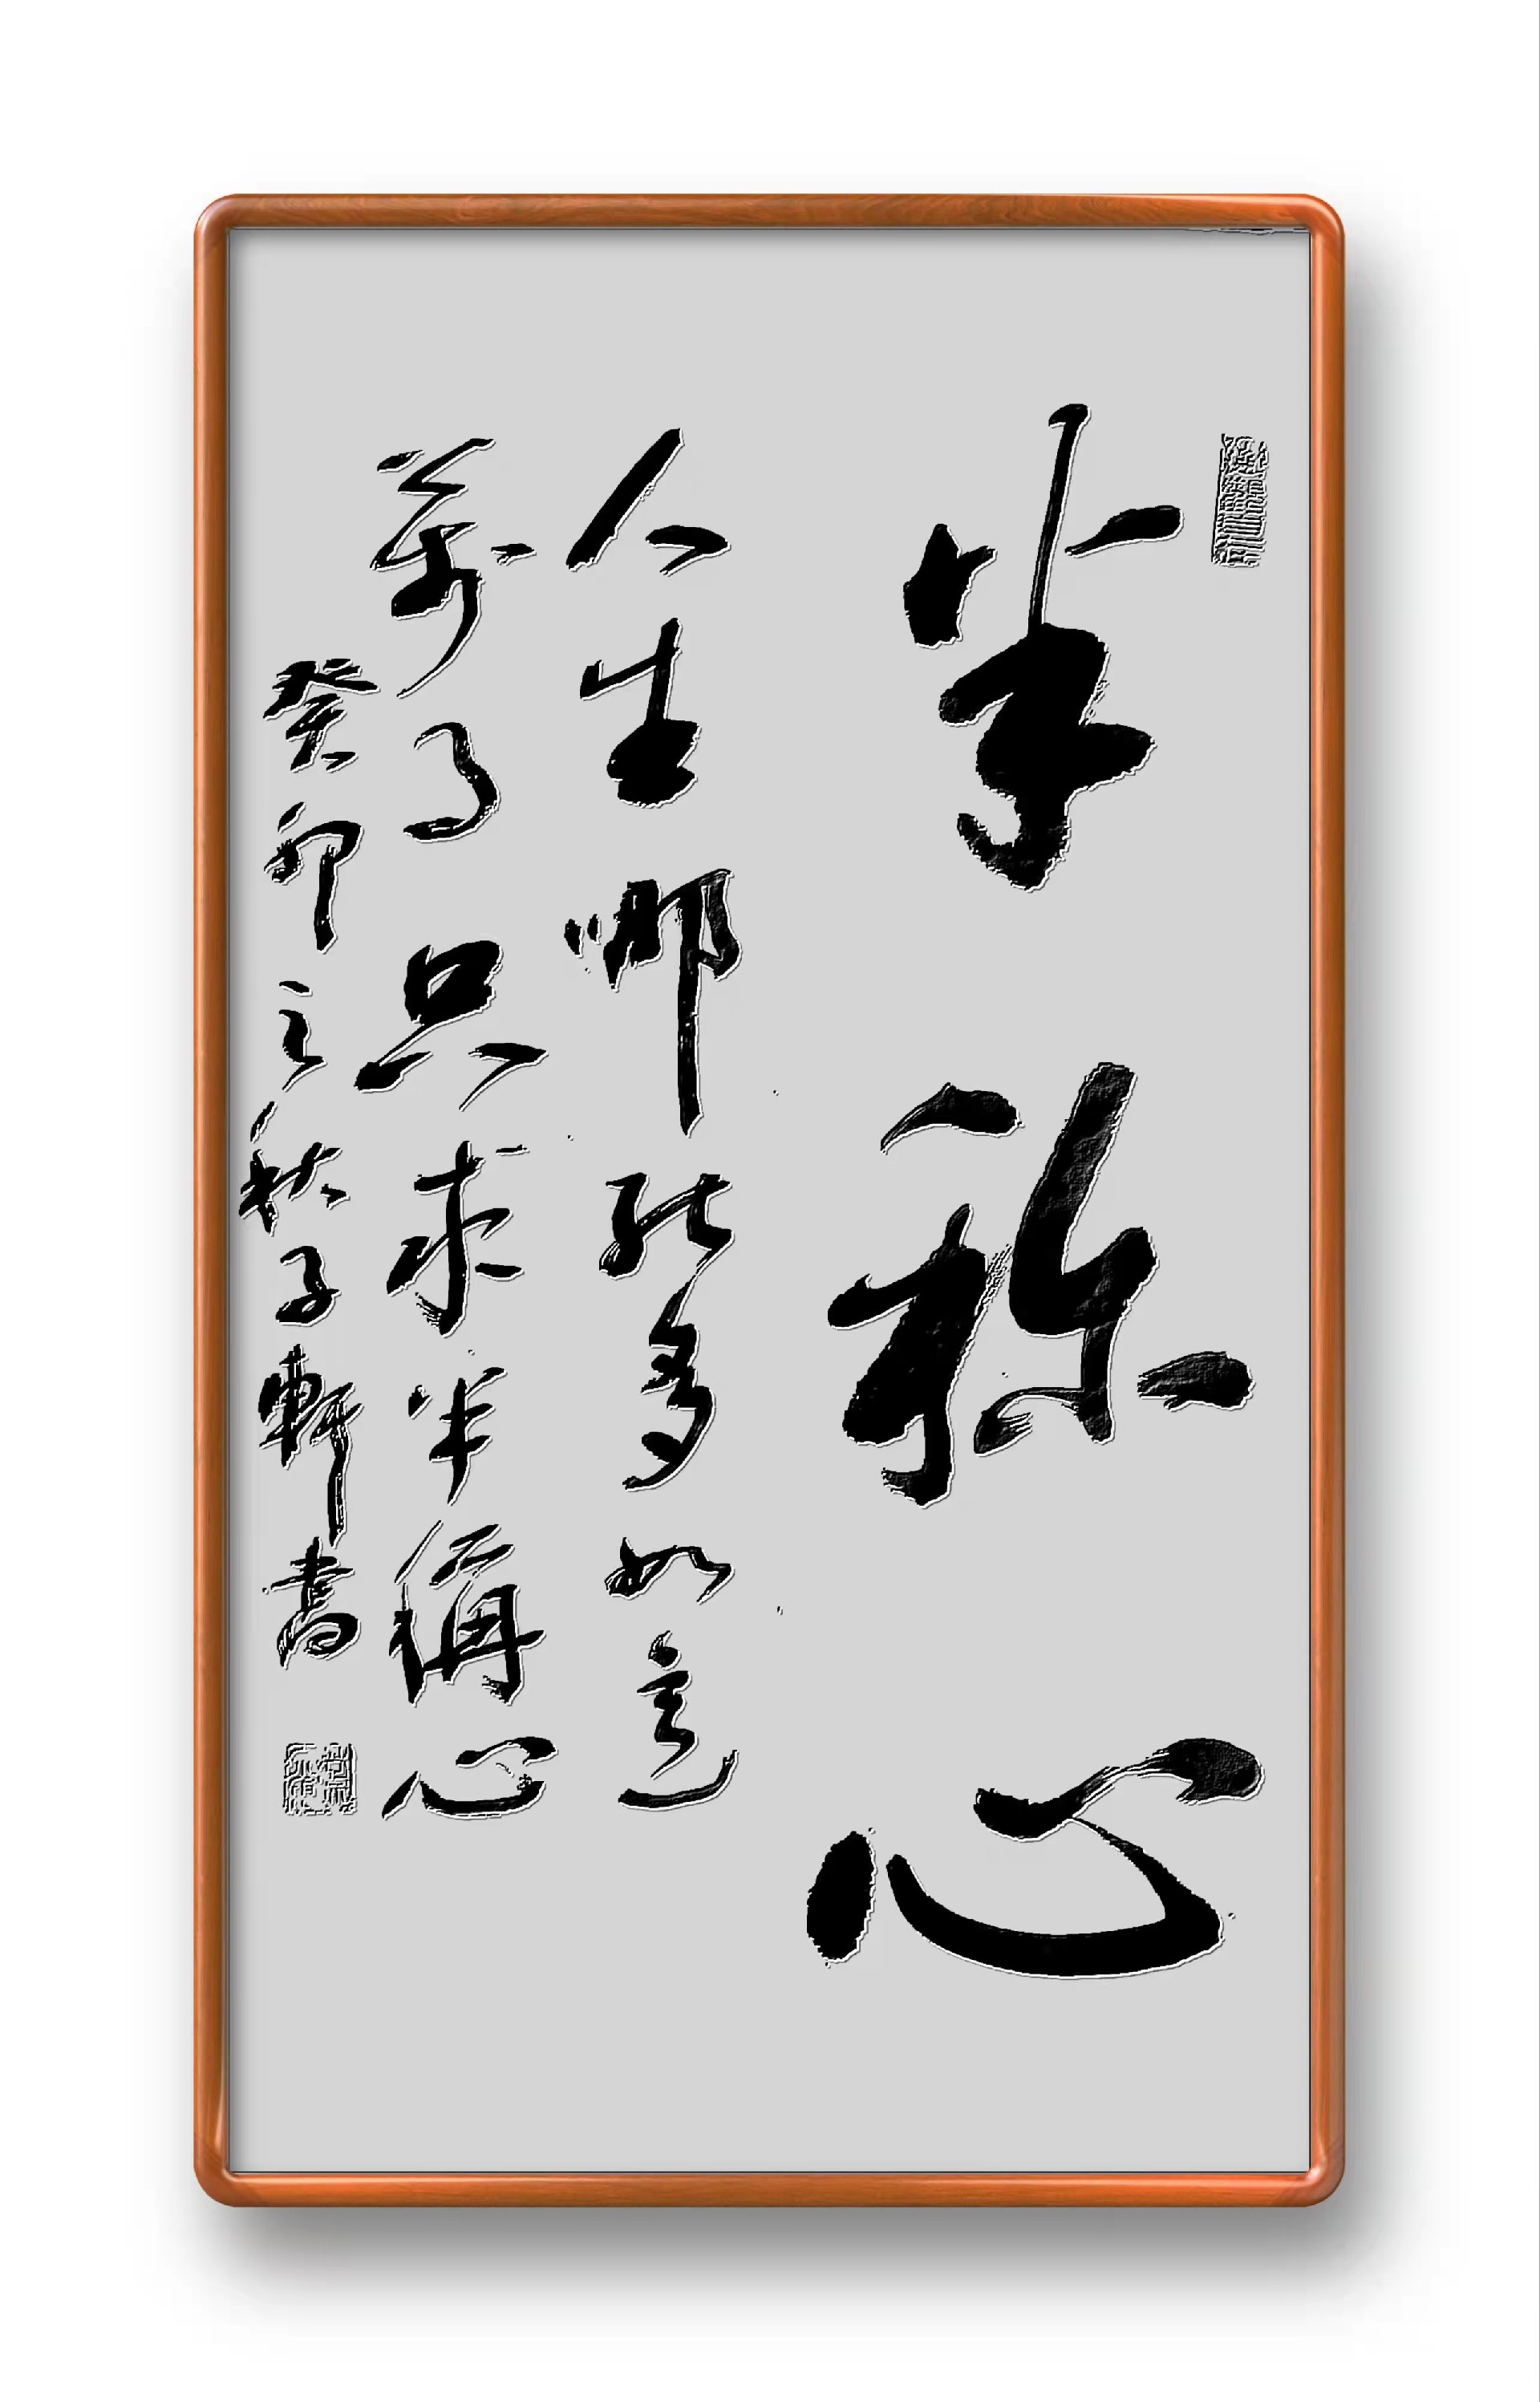 半称心
人生哪能多如意
萬事只求半稱心
癸卯之秋子軒書